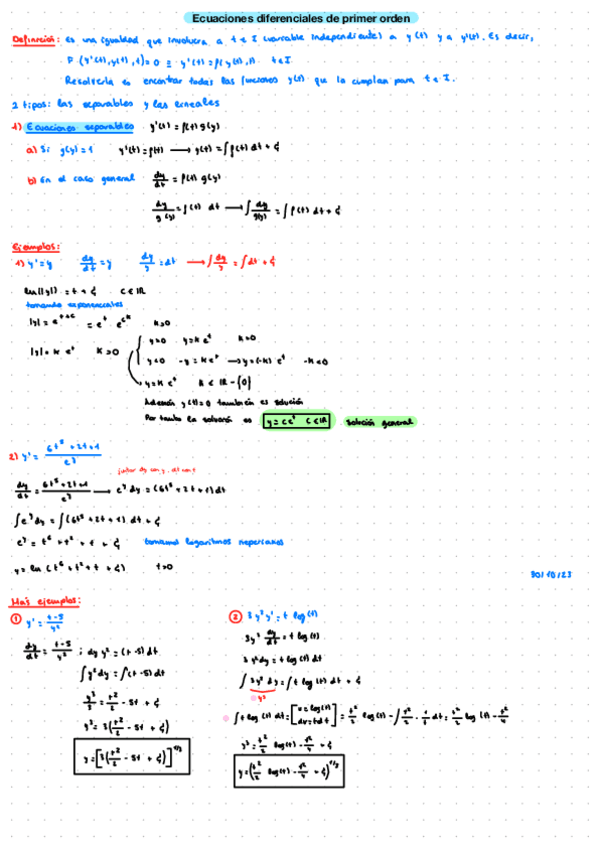 Ecuaciones diferenciales de primer orden
Definición: es una igualdad que involucra a t ∈ I (variable independiente) a y(t) y a y'(t). Es decir,
F (y'(t), y(t), t) = 0 ≡ y'(t) = f(y(t), t) t ∈ I
Resolverla es encontrar todas las funciones y(t) que lo cumplan para t ∈ I.
2 tipos: las separables y las lineales
1) Ecuaciones separables y'(t) = f(t) g(y)
a) Si g(y) = 1 y'(t) = f(t) → y(t) = ∫ f(t) dt + C
b) En el caso general dy/dt = f(t) g(y)
dy/g(y) = f(t) dt → ∫ dy/g(y) = ∫ f(t) dt + C
Ejemplos:
1) y' = y dy/dt = y dy/y = dt → ∫ dy/y = ∫ dt + C
ln(|y|) = t + C C ∈ IR
tomando exponenciales
|y| = e^t+c = e^t e^c K>0
|y| = K e^t K>0
y>0 y = K e^t K>0
y<0 -y = K e^t → y = (-K) e^t -K<0
y = K e^t K ∈ IR - {0}
Además y(t) = 0 también es solución
Por tanto la solución es y = C e^t C ∈ IR solución general
2) y' = 6t^5 + 2t + 1 / e^y
juntar dy con y, dt con t
dy/dt = 6t^5 + 2t + 1 / e^y → e^y dy = (6t^5 + 2t + 1) dt
∫ e^y dy = ∫ (6t^5 + 2t + 1) dt + C
e^y = t^6 + t^2 + t + C tomamos logaritmos neperianos
y = ln (t^6 + t^2 + t + C) t>0
30/10/23
Más ejemplos:
① y' = t-5 / y^2
dy/dt = t-5 / y^2 ; dy y^2 = (t-5) dt
∫ y^2 dy = ∫ (t-5) dt
y^3/3 = t^2/2 - 5t + C
y^3 = 3(t^2/2 - 5t + C)
y = [3(t^2/2 - 5t + C)]^1/3
② 3 y^2 y' = t log(t)
3y^2 dy/dt = t log(t)
3 y^2 dy = t log(t) dt
∫ 3y^2 dy = ∫ t log(t) dt + C
y^3
∫ t log(t) dt = [u = log(t) dv = t dt] = t^2/2 log(t) - ∫ t^2/2 · 1/t dt = t^2/2 log(t) - t^2/4
y^3 = t^2/2 log(t) - t^2/4 + C
y = (t^2/2 log(t) - t^2/4 + C)^1/3